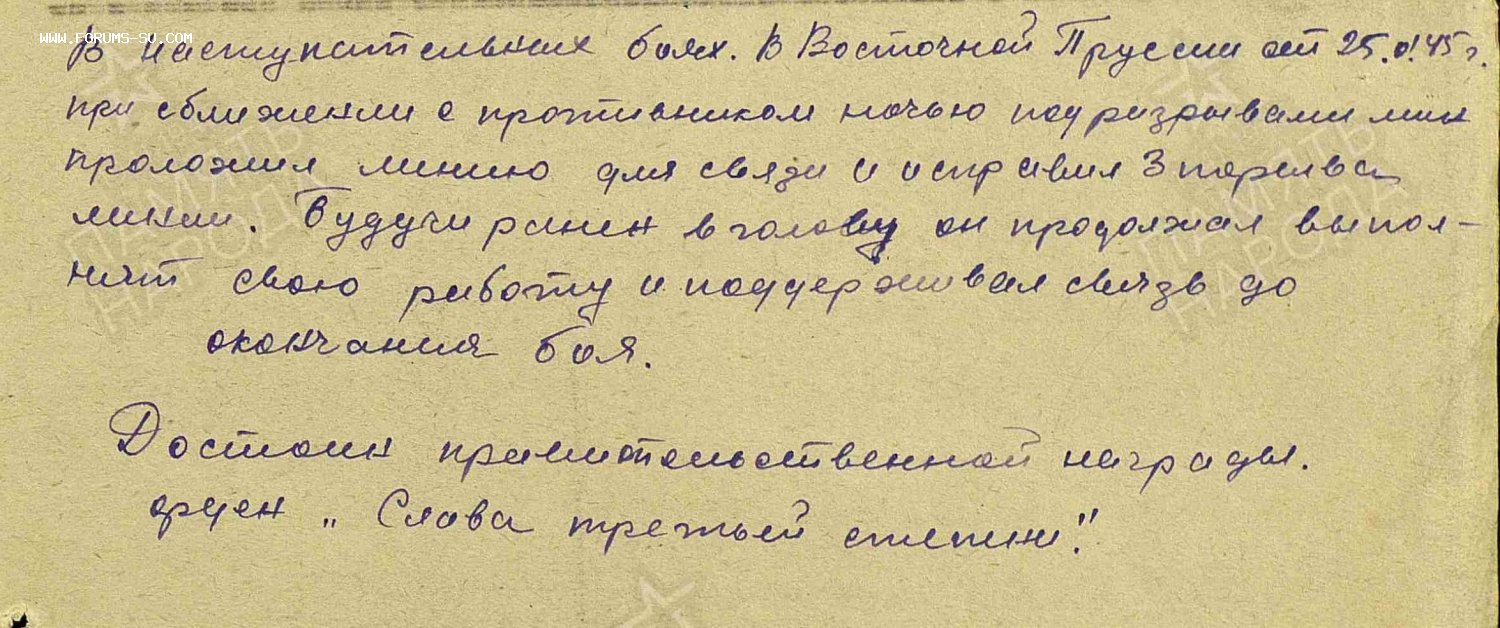 WWW.FORUMS-SU.COM
В наступательных боях. В Восточной Пруссии от 25.01.45 г.
при сближении с противником ночью под разрывами мин
проложил линию для связи и исправил 3 порыва
линии. Будучи ранен в голову он продолжал выпол-
нят свою работу и поддерживал связь до
окончания боя.
Достоин правительственной награды.
орден „Слава третьей степени".
ПАМЯТЬ
НАРОДА
ПАМЯТЬ
НАРОДА